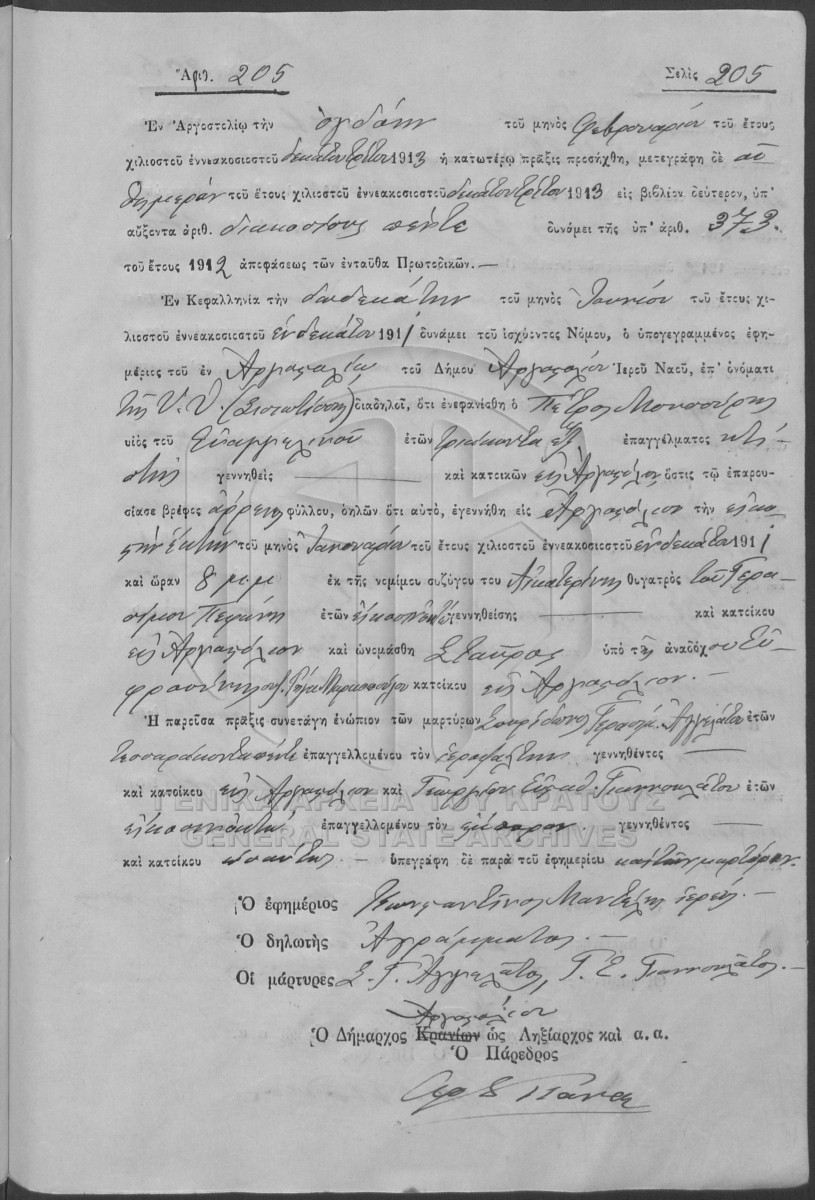 Ἀριθ. 205 Σελὶς 205
Ἐν Ἀργοστολίῳ τὴν ὀγδόην τοῦ μηνὸς Φεβρουαρίου τοῦ ἔτους
χιλιοστοῦ ἐννεακοσιοστοῦ δεκάτου τρίτου 1913 ἡ κατωτέρω πρᾶξις προσήχθη, μετεγράφη δὲ αὐ
θημερὸν τοῦ ἔτους χιλιοστοῦ ἐννεακοσιοστοῦ δεκάτου τρίτου 1913 εἰς βιβλίον δεύτερον, ὑπ'
αὔξοντα ἀριθ. διακοσίους πέντε δυνάμει τῆς ὑπ' ἀριθ. 373.
τοῦ ἔτους 1912 ἀποφάσεως τῶν ἐνταῦθα Πρωτοδικῶν.—
Ἐν Κεφαλληνίᾳ τὴν δωδεκάτην τοῦ μηνὸς Ἰουνίου τοῦ ἔτους χι-
λιοστοῦ ἐννεακοσιοστοῦ ἑνδεκάτου 1911 δυνάμει τοῦ ἰσχύοντος Νόμου, ὁ ὑπογεγραμμένος ἐφη-
μέριος τοῦ ἐν Ἀργοστολίῳ τοῦ Δήμου Ἀργοστολίου Ἱεροῦ Ναοῦ, ἐπ' ὀνόματι
τῆς (Σισιωτίσσης) διαδηλοῖ, ὅτι ἐνεφανίσθη ὁ Πέτρος Μουσούρης
υἱὸς τοῦ Εὐαγγελινοῦ ἐτῶν τριάκοντα ἓξ ἐπαγγέλματος κτί-
στης γεννηθεὶς — καὶ κατοικῶν εἰς Ἀργοστόλιον ὅστις τῷ ἐπαρου-
σίασε βρέφος ἄρρενος φύλλου, δηλῶν ὅτι αὐτὸ, ἐγεννήθη εἰς Ἀργοστόλιον τὴν εἰκο
στὴν ἕκτην τοῦ μηνὸς Ἰανουαρίου τοῦ ἔτους χιλιοστοῦ ἐννεακοσιοστοῦ ἑνδεκάτου 1911
καὶ ὥραν 8 μ.μ ἐκ τῆς νομίμου συζύγου του Αἰκατερίνης θυγατρὸς τοῦ Γερα-
σίμου ἐτῶν εἰκοσιοκτώ γεννηθείσης — καὶ κατοίκου
εἰς Ἀργοστόλιον καὶ ὠνομάσθη Σταῦρος ὑπὸ τῆς ἀναδόχου Εὐ-
φροσύνης κατοίκου εἰς Ἀργοστόλιον.—
Ἡ παροῦσα πρᾶξις συνετάγη ἐνώπιον τῶν μαρτύρων Σπυρίδωνος Γερασίμ. Ἀγγελάτου ἐτῶν
τεσσαράκοντα πέντε ἐπαγγελλομένου τὸν ἱεροψάλτην γεννηθέντος —
καὶ κατοίκου εἰς Ἀργοστόλιον καὶ Γεωργίου Εὐσταθ. Γιαννουλάτου ἐτῶν
εἰκοσιοκτώ ἐπαγγελλομένου τὸν ἔμπορον γεννηθέντος —
ΓΕΝΙΚΑ ΑΡΧΕΙΑ ΤΟΥ ΚΡΑΤΟΥΣ
GENERAL STATE ARCHIVES
καὶ κατοίκου ὡσαύτως.— ὑπεγράφη δὲ παρὰ τοῦ ἐφημερίου καὶ τῶν μαρτύρων.
Ὁ ἐφημέριος Κωνσταντῖνος ἱερεύς.—
Ὁ δηλωτὴς Ἀγράμματος.—
Οἱ μάρτυρες Σ. Γ. Ἀγγελάτος, Γ. Ε. Γιαννουλάτος.—
Ἀργοστολίου
Ὁ Δήμαρχος Κρανίων ὡς Ληξίαρχος καὶ α. α.
Ὁ Πάρεδρος